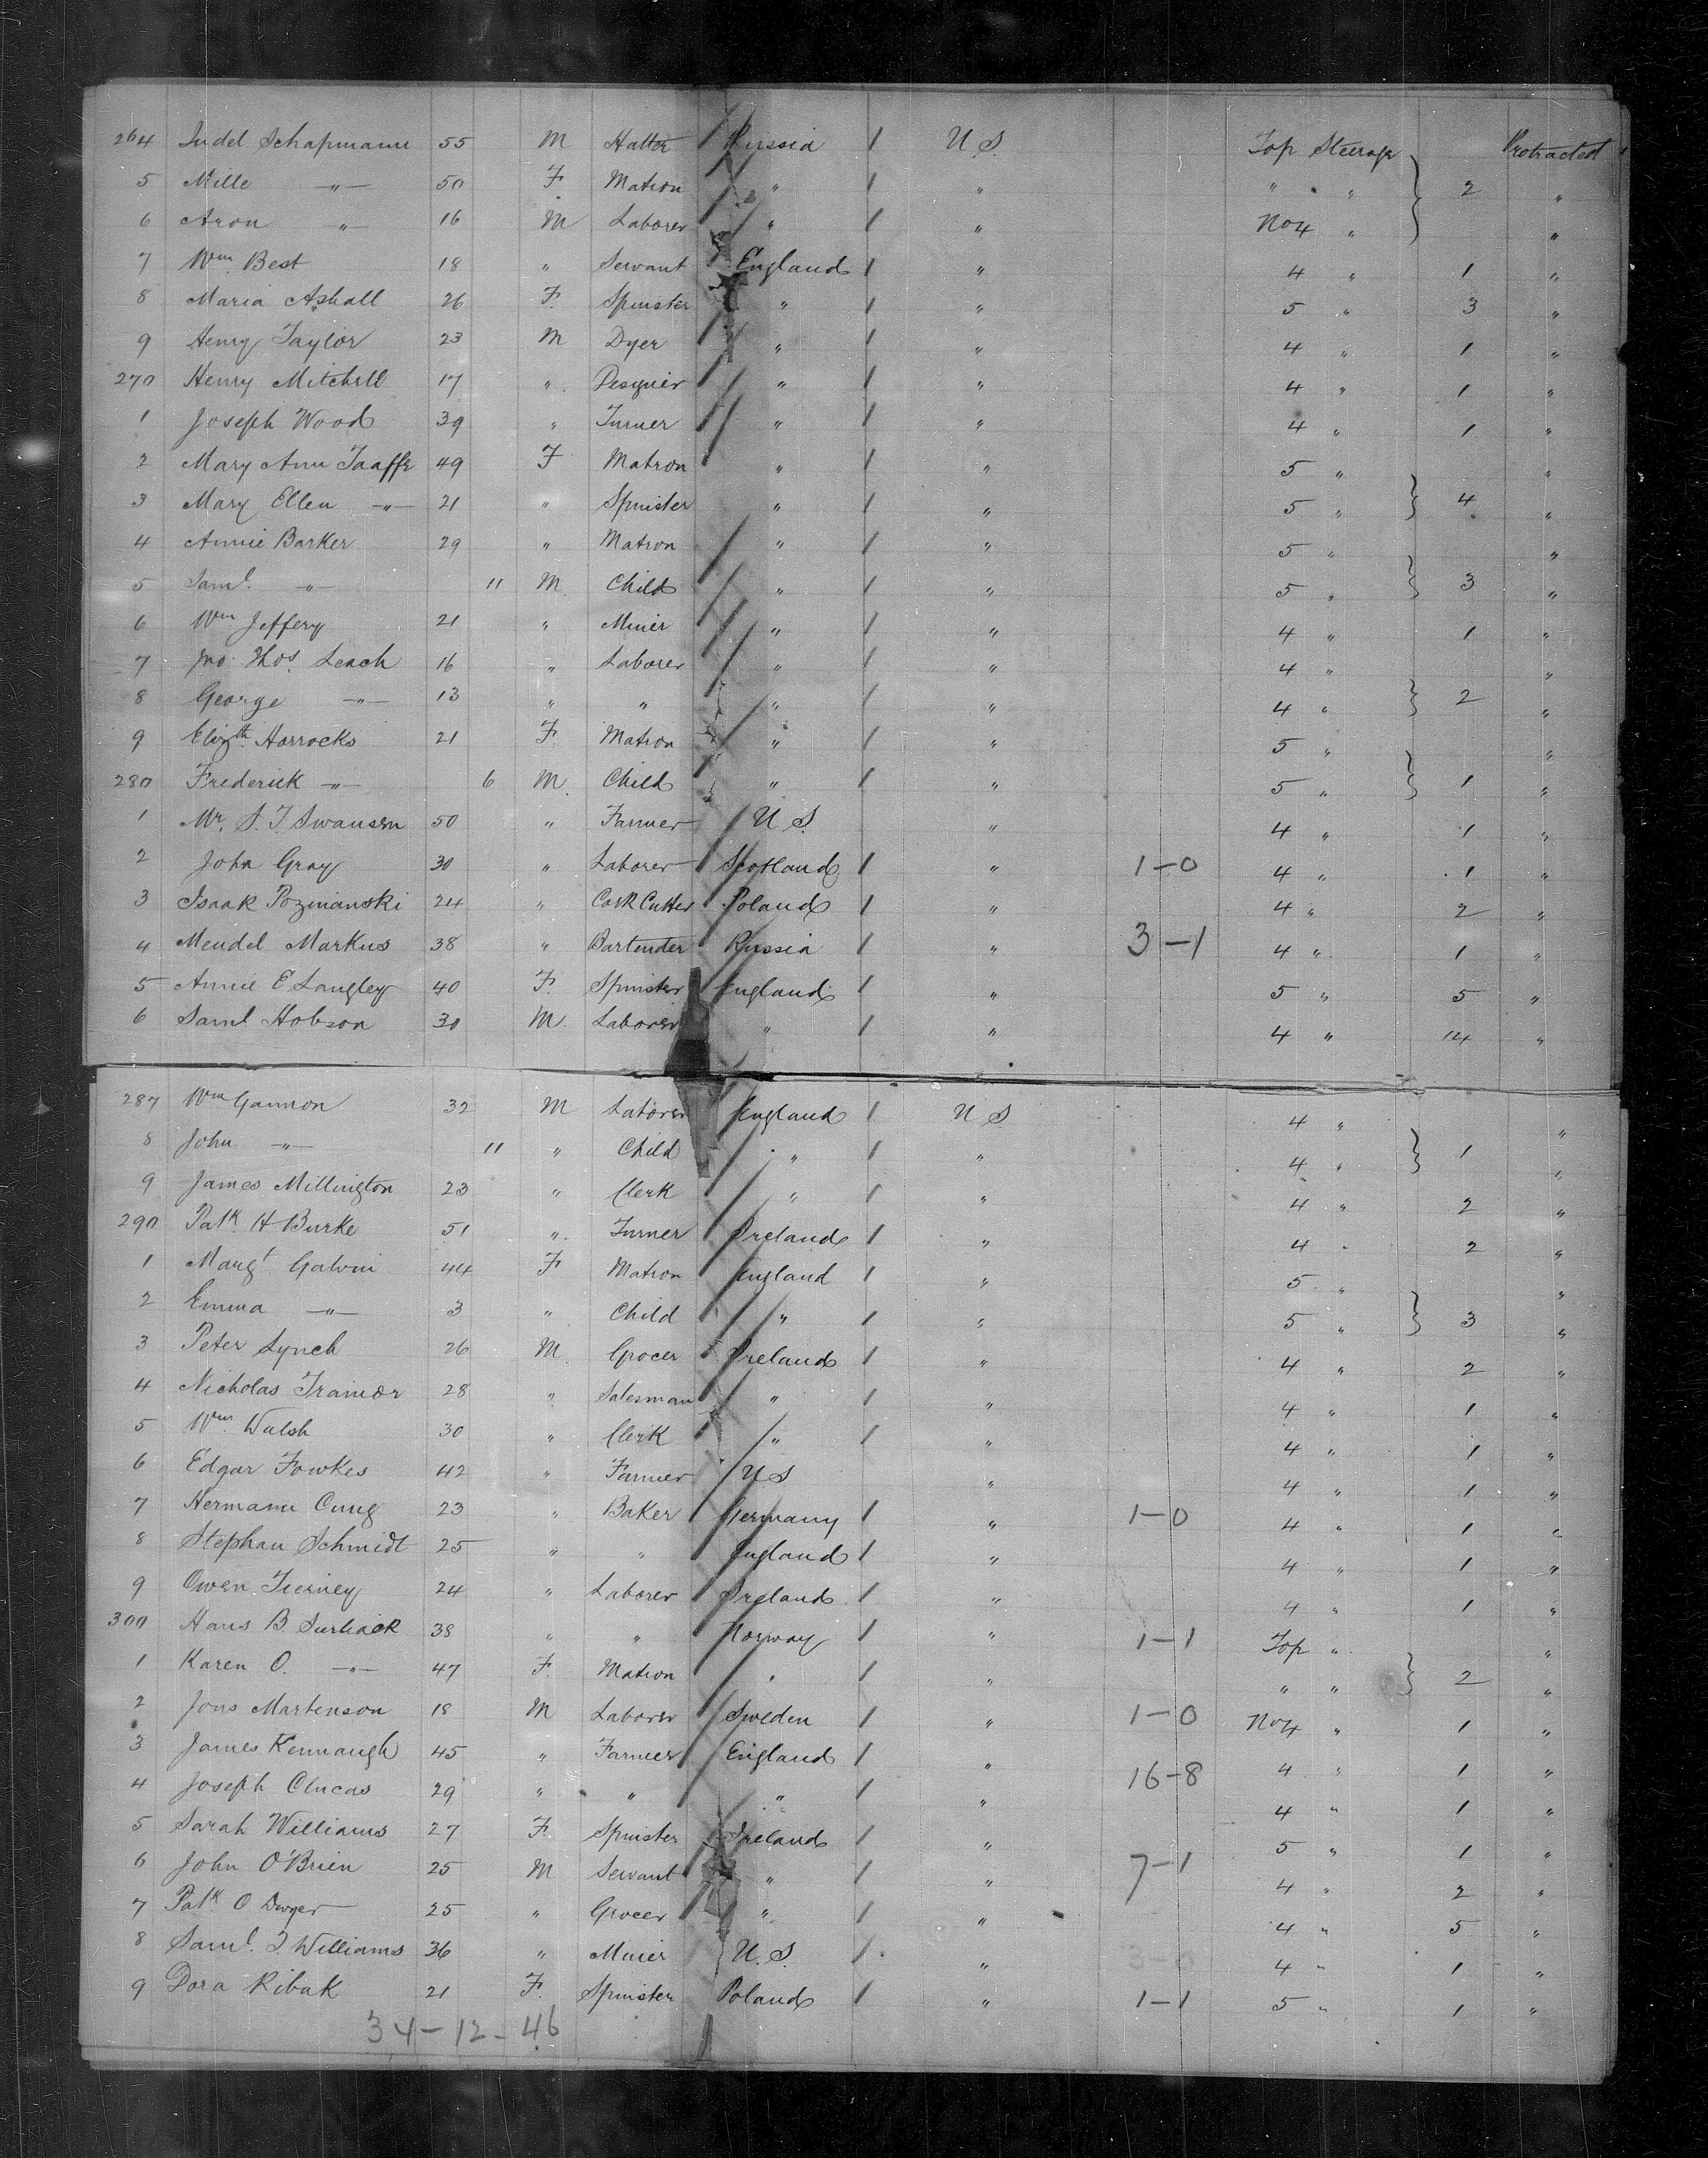 264 Judel Schapmann 55 M Hatter Russia / U S Top Steerage Protracted
5 Mille -"- 50 F Matron " / " " " 2 "
6 Aron -"- 16 M Laborer " / " No 4 " "
7 Wm Best 18 " Servant England / " 4 " 1 "
8 Maria Ashall 26 F. Spinster " / " 5 " 3 "
9 Henry Taylor 23 M Dyer " / " 4 " 1 "
270 Henry Mitchell 17 " Designer " / " 4 " 1 "
1 Joseph Wood 39 " Turner " / " 4 " 1 "
2 Mary Ann Taaffe 49 F Matron " / " 5 " "
3 Mary Ellen -"- 21 " Spinster " / " 5 " 4 "
4 Annie Barker 29 " Matron " / " 5 " "
5 Saml. -"- 11 M. Child " / " 5 " 3 "
6 Wm Jeffery 21 " Miner " / " 4 " 1 "
7 Jno. Thos. Leach 16 " Laborer " / " 4 " "
8 George -"- 13 " " " / " 4 " 2 "
9 Elizth. Horrocks 21 F. Matron " / " 5 " "
280 Frederick -"- 6 M. Child " / " 5 " 1 "
1 Mr. S. T. Swansen 50 " Farmer U S. " 4 " 1 "
2 John Gray 30 " Laborer Scotland / " 1-0 4 " 1 "
3 Isaak Pozinanski 24 " Cork Cutter Poland / " 4 " 2 "
4 Mendel Markus 38 " Bartender Russia / " 3-1 4 " 1 "
5 Annie E Langley 40 F. Spinster England / " 5 " 5 "
6 Saml Hobson 30 M. Laborer " / " 4 " 14 "
287 Wm Gannon 32 M Laborer England / U S 4 " "
8 John -"- 11 " Child " / " 4 " 1 "
9 James Millington 23 " Clerk " / " 4 " 2 "
290 Patk. H Burke 51 " Turner Ireland / " 4 " 2 "
1 Margt Galvin 44 F Matron England / " 5 " "
2 Emma -"- 3 " Child " / " 5 " 3 "
3 Peter Lynch 26 M. Grocer Ireland / " 4 " 2 "
4 Nicholas Trainor 28 " Salesman " / " 4 " 1 "
5 Wm Walsh 30 " Clerk " / " 4 " 1 "
6 Edgar Fowkes 42 " Farmer U S " 4 " 1 "
7 Hermann 23 " Baker Germany / " 1-0 4 " 1 "
8 Stephan Schmidt 25 " " England / " 4 " 1 "
9 Owen Tierney 24 " Laborer Ireland / " 4 " 1 "
300 Hans B. 38 " " Norway / " 1-1 Top " "
1 Karen O. -"- 47 F. Matron " / " " " 2 "
2 Jons Martenson 18 M Laborer Sweden / " 1-0 No 4 " 1 "
3 James Kennaugh 45 " Farmer England / " 16-8 4 " 1 "
4 Joseph Clucas 29 " " " / " 4 " 1 "
5 Sarah Williams 27 F. Spinster Ireland / " 5 " 1 "
6 John O'Brien 25 M Servant " / " 7-1 4 " 2 "
7 Patk O Dwyer 25 " Grocer " / " 4 " 5 "
8 Saml. T. Williams 36 " Miner U. S. / " 3-0 4 " 1 "
9 Dora Ribak 21 F. Spinster Poland / " 1-1 5 " 1 "
34-12-46